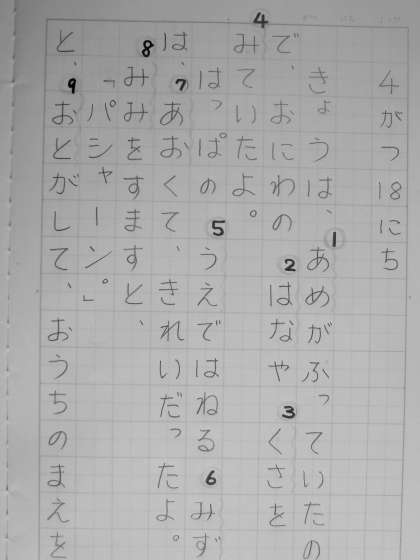 4がつ18にち
きょうは、あめがふっていたの
で、おにわの はなや くさを
みていたよ。
はっぱの うえではねる みず
は、あおくて、きれいだったよ。
みみをすますと、
「パシャーン」。
と、おとがして、おうちのまえを
1
2
3
4
5
6
7
8
9